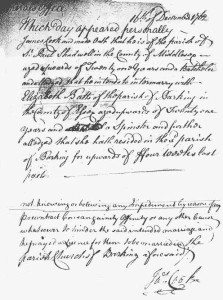 16th of December 1762
Which day appeared personally
James Cook and made Oath that he is of the parish of
St. Paul Shadwell in the County of Middlesex
aged upwards of Twenty one Years and a Batchelor
and alledged that he intends to intermarry with
Elizabeth Batts of the parish of Barking in
the County of Essex aged upwards of Twenty one
Years and a Spinster and further
alledged that she hath resided in the sd parish
of Barking for upwards of Four Weeks last
past.
not knowing or believing any Impediment by reason of any
precontract Consanguinity Affinity or any other Cause
whatsoever to hinder the said intended marriage and
he prayed a Licence for them to be married in the
parish Church of Barking aforesaid
Jas Cook